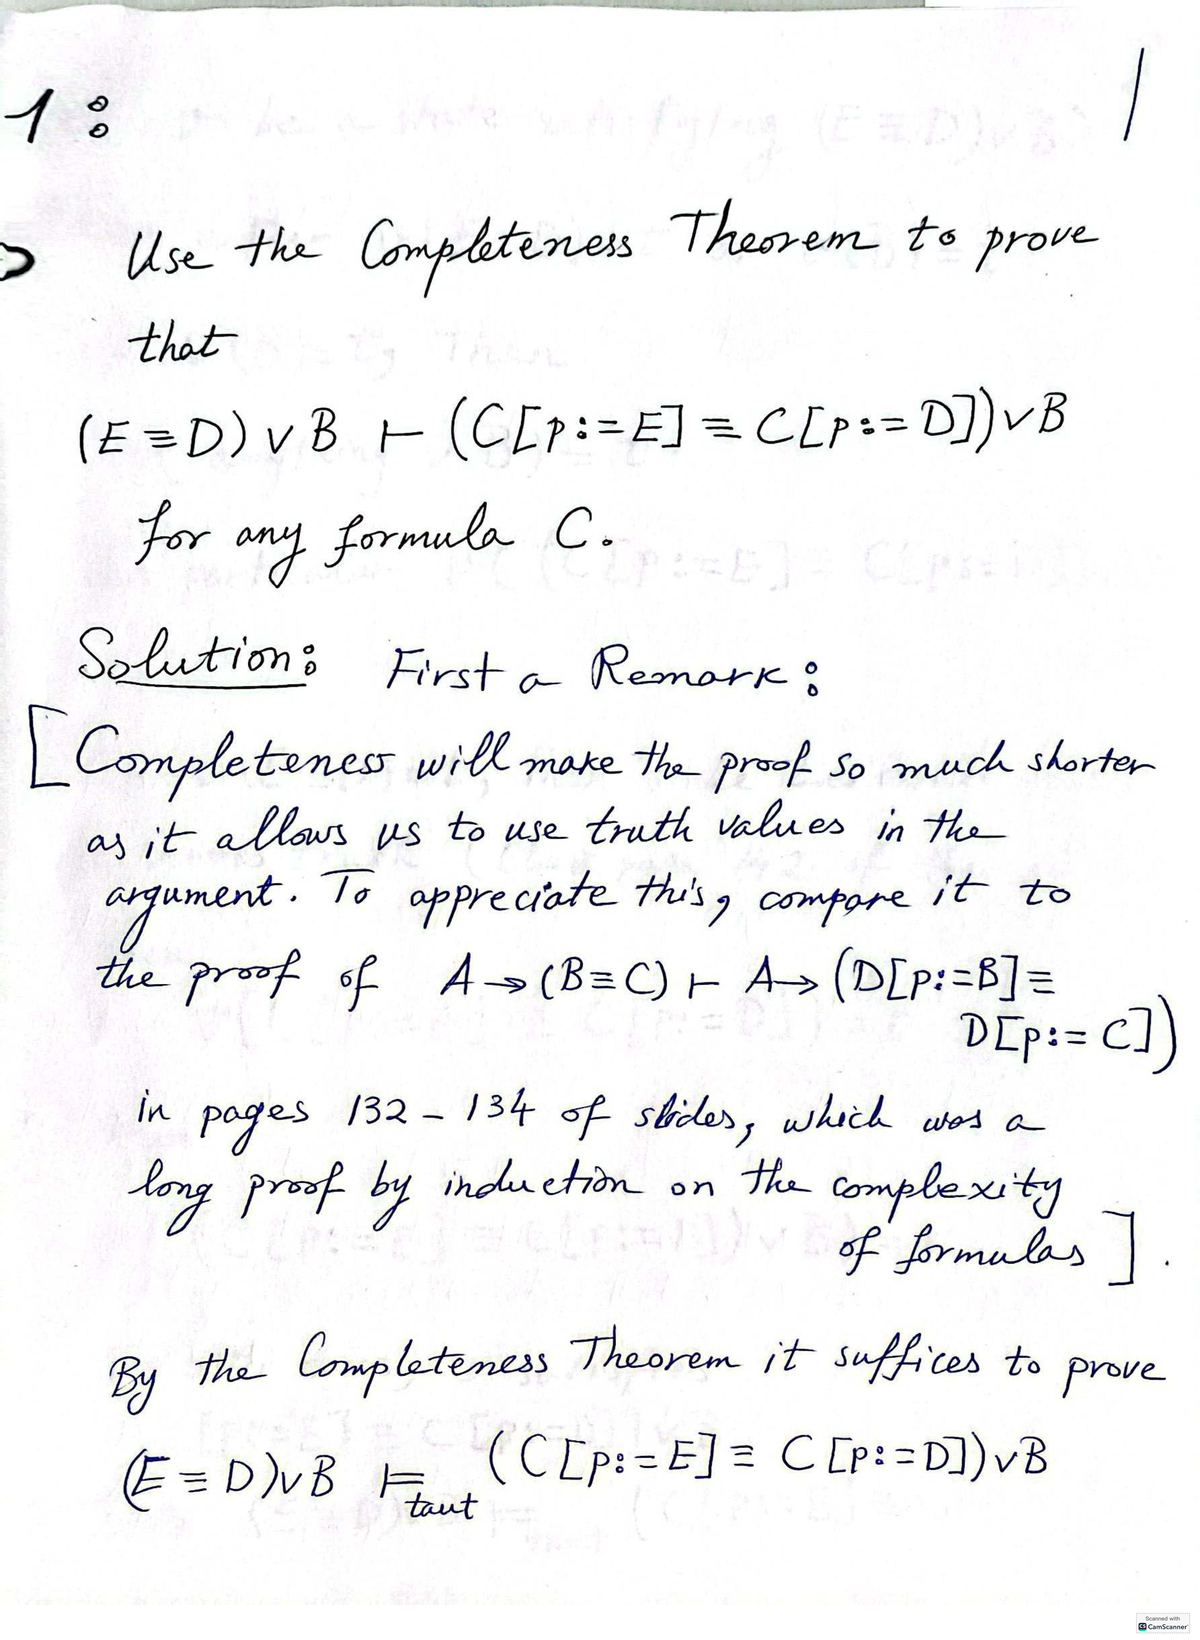 1:
1
Use the Completeness Theorem to prove
that
(E ≡ D) ∨ B ⊢ (C[p:=E] ≡ C[p:=D]) ∨ B
for any formula C.
Solution: First a Remark:
[Completeness will make the proof so much shorter
as it allows us to use truth values in the
argument. To appreciate this, compare it to
the proof of A → (B ≡ C) ⊢ A → (D[p:=B] ≡
D[p:= C])
in pages 132 - 134 of slides, which was a
long proof by induction on the complexity
of formulas].
By the Completeness Theorem it suffices to prove
(E ≡ D) ∨ B ⊨taut (C[p:=E] ≡ C[p:=D]) ∨ B
Scanned with
CS CamScanner